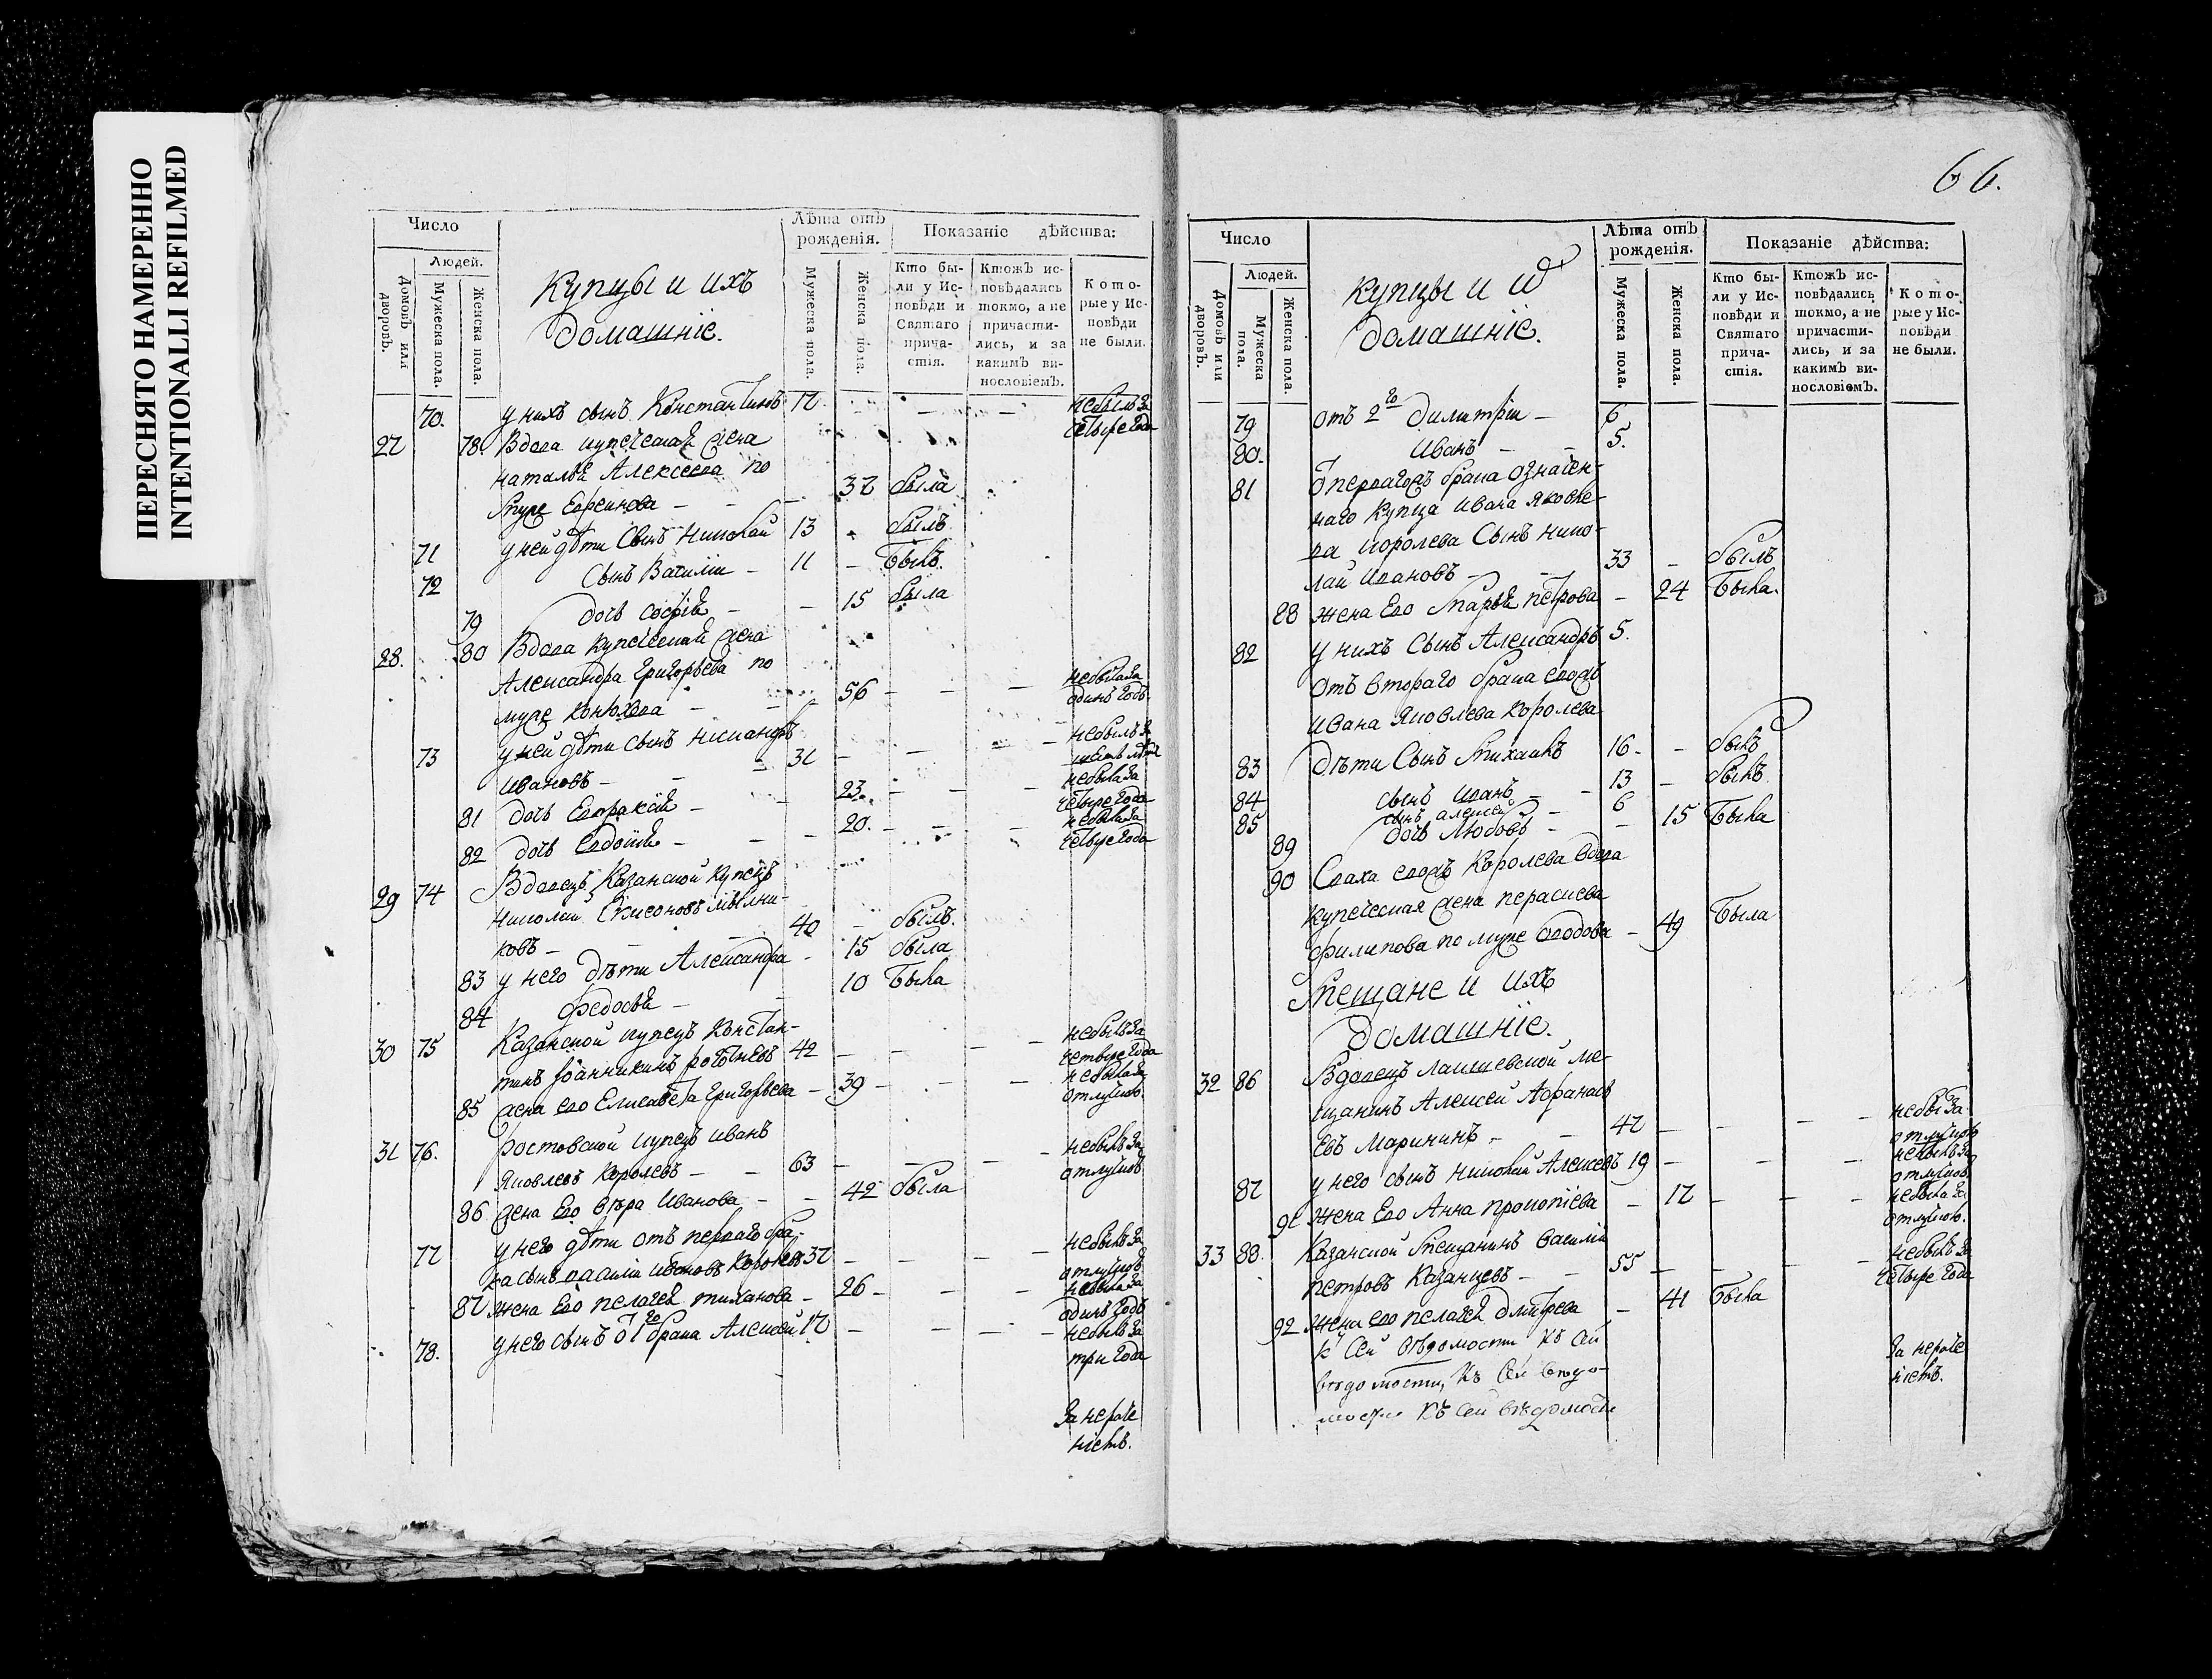 ПЕРЕСНЯТО НАМЕРЕННО
INTENTIONALLI REFILMED
66.
Число
Людей.
Домовъ или дворовъ.
Мужеска пола.
Женска пола.
Купцы и ихъ
домашніе.
Лѣта отъ рожденія.
Мужеска пола.
Женска пола.
Показаніе дѣйства:
Кто бы-
ли у Ис-
повѣди и
Святаго
прича-
стія.
Ктожъ ис-
повѣдались
токмо, а не
причасти-
лись, и за
какимъ ви-
нословіемъ.
Кото-
рые у Ис-
повѣди
не были.
70. у нихъ сынъ Константинъ 17 - - - небылъ за
четыре года
27 78. Вдова купеческая жена
наталья Алексеева по
муже - - 37 была
71 у ней дѣти Сынъ Николай 13 - былъ
72 Сынъ Василіи - 11 - былъ.
79 дочь софія - - 15 была
28. 80 Вдова купеческая жена
Александра Григорьева по
муже Конюхова - - 56 - - - небыла за
одинъ годъ
73 у ней дѣти сынъ никаноръ
ивановъ - - 31 - - - - небылъ за
шесть лѣтъ
81 дочь Евпраксія - - 23. - - - небыла за
четыре года
82 дочь Евдокія - - 20. - - - небыла за
четыре года
29 74 Вдовецъ Казанской купецъ
Николай мыльни-
ковъ - - 40 - былъ.
83 у него дѣти Александра - 15 была
84 федосья - - 10 Была
30 75 Казанской купецъ Констан-
тинъ 42 - - - - небылъ за
четыре года
85 жена его Елисавета Григорьева - 39 - - - небыла за
отлучкою.
31 76. ростовской купецъ иванъ
Яковлевъ Королевъ - - 63 - - - - небылъ за
отлучкою
86 жена Его вѣра Иванова - - 42 была
77 у него дѣти отъ перваго бра-
ка сынъ василіи ивановъ Королевъ 37 - - - - небылъ за
отлучкою
87 жена Его пелагея тиханова - 26 - - - небыла за
одинъ годъ
78. у него сынъ от 1го брака Алексей 17 - - - - небылъ за
три года
За
Число
Людей.
Домовъ или дворовъ.
Мужеска пола.
Женска пола.
купцы и
домашніе.
Лѣта отъ рожденія.
Мужеска пола.
Женска пола.
Показаніе дѣйства:
Кто бы-
ли у Ис-
повѣди и
Святаго
прича-
стія.
Ктожъ ис-
повѣдались
токмо, а не
причасти-
лись, и за
какимъ ви-
нословіемъ.
Кото-
рые у Ис-
повѣди
не были.
79 отъ 2го димитріи - 6
80. Иванъ - - 5.
81 брака означен-
наго Купца ивана яковле-
ва королева Сынъ нико-
лай ивановъ - - 33 - былъ
88 жена Его Марья петрова - 24 Была.
82 у нихъ Сынъ Александръ 5.
Отъ втораго брака
ивана Яковлева королева
83 Дѣти Сынъ Михаилъ 16 - - былъ
84 сынъ иванъ - - 13 - былъ
85 сынъ алексей - 6
89 дочь Любовь - - 15 Была
90 Королева вдова
купеческая жена
филипова по муже - 49 Была
Мещане и ихъ
домашніе.
32 86 Вдовецъ лаишевской ме-
щанинъ Алексей Афанась
евъ Марининъ - - 47 - - - -
отлучкою
87 у него сынъ николай Алексеевъ 19 - - - небылъ за
отлучкою
91 жена Его Анна прокопіева - 17 - - - небыла за
отлучкою.
33 88. Казанской Мещанинъ василіи
петровъ Казанцевъ - - 55 - - - - небылъ за
четыре года
92 жена его пелагея дмитрева - 41 Была
къ Сей вѣдомости къ сей
вѣдомости, къ сей вѣдо-
мости къ сей вѣдомости
За